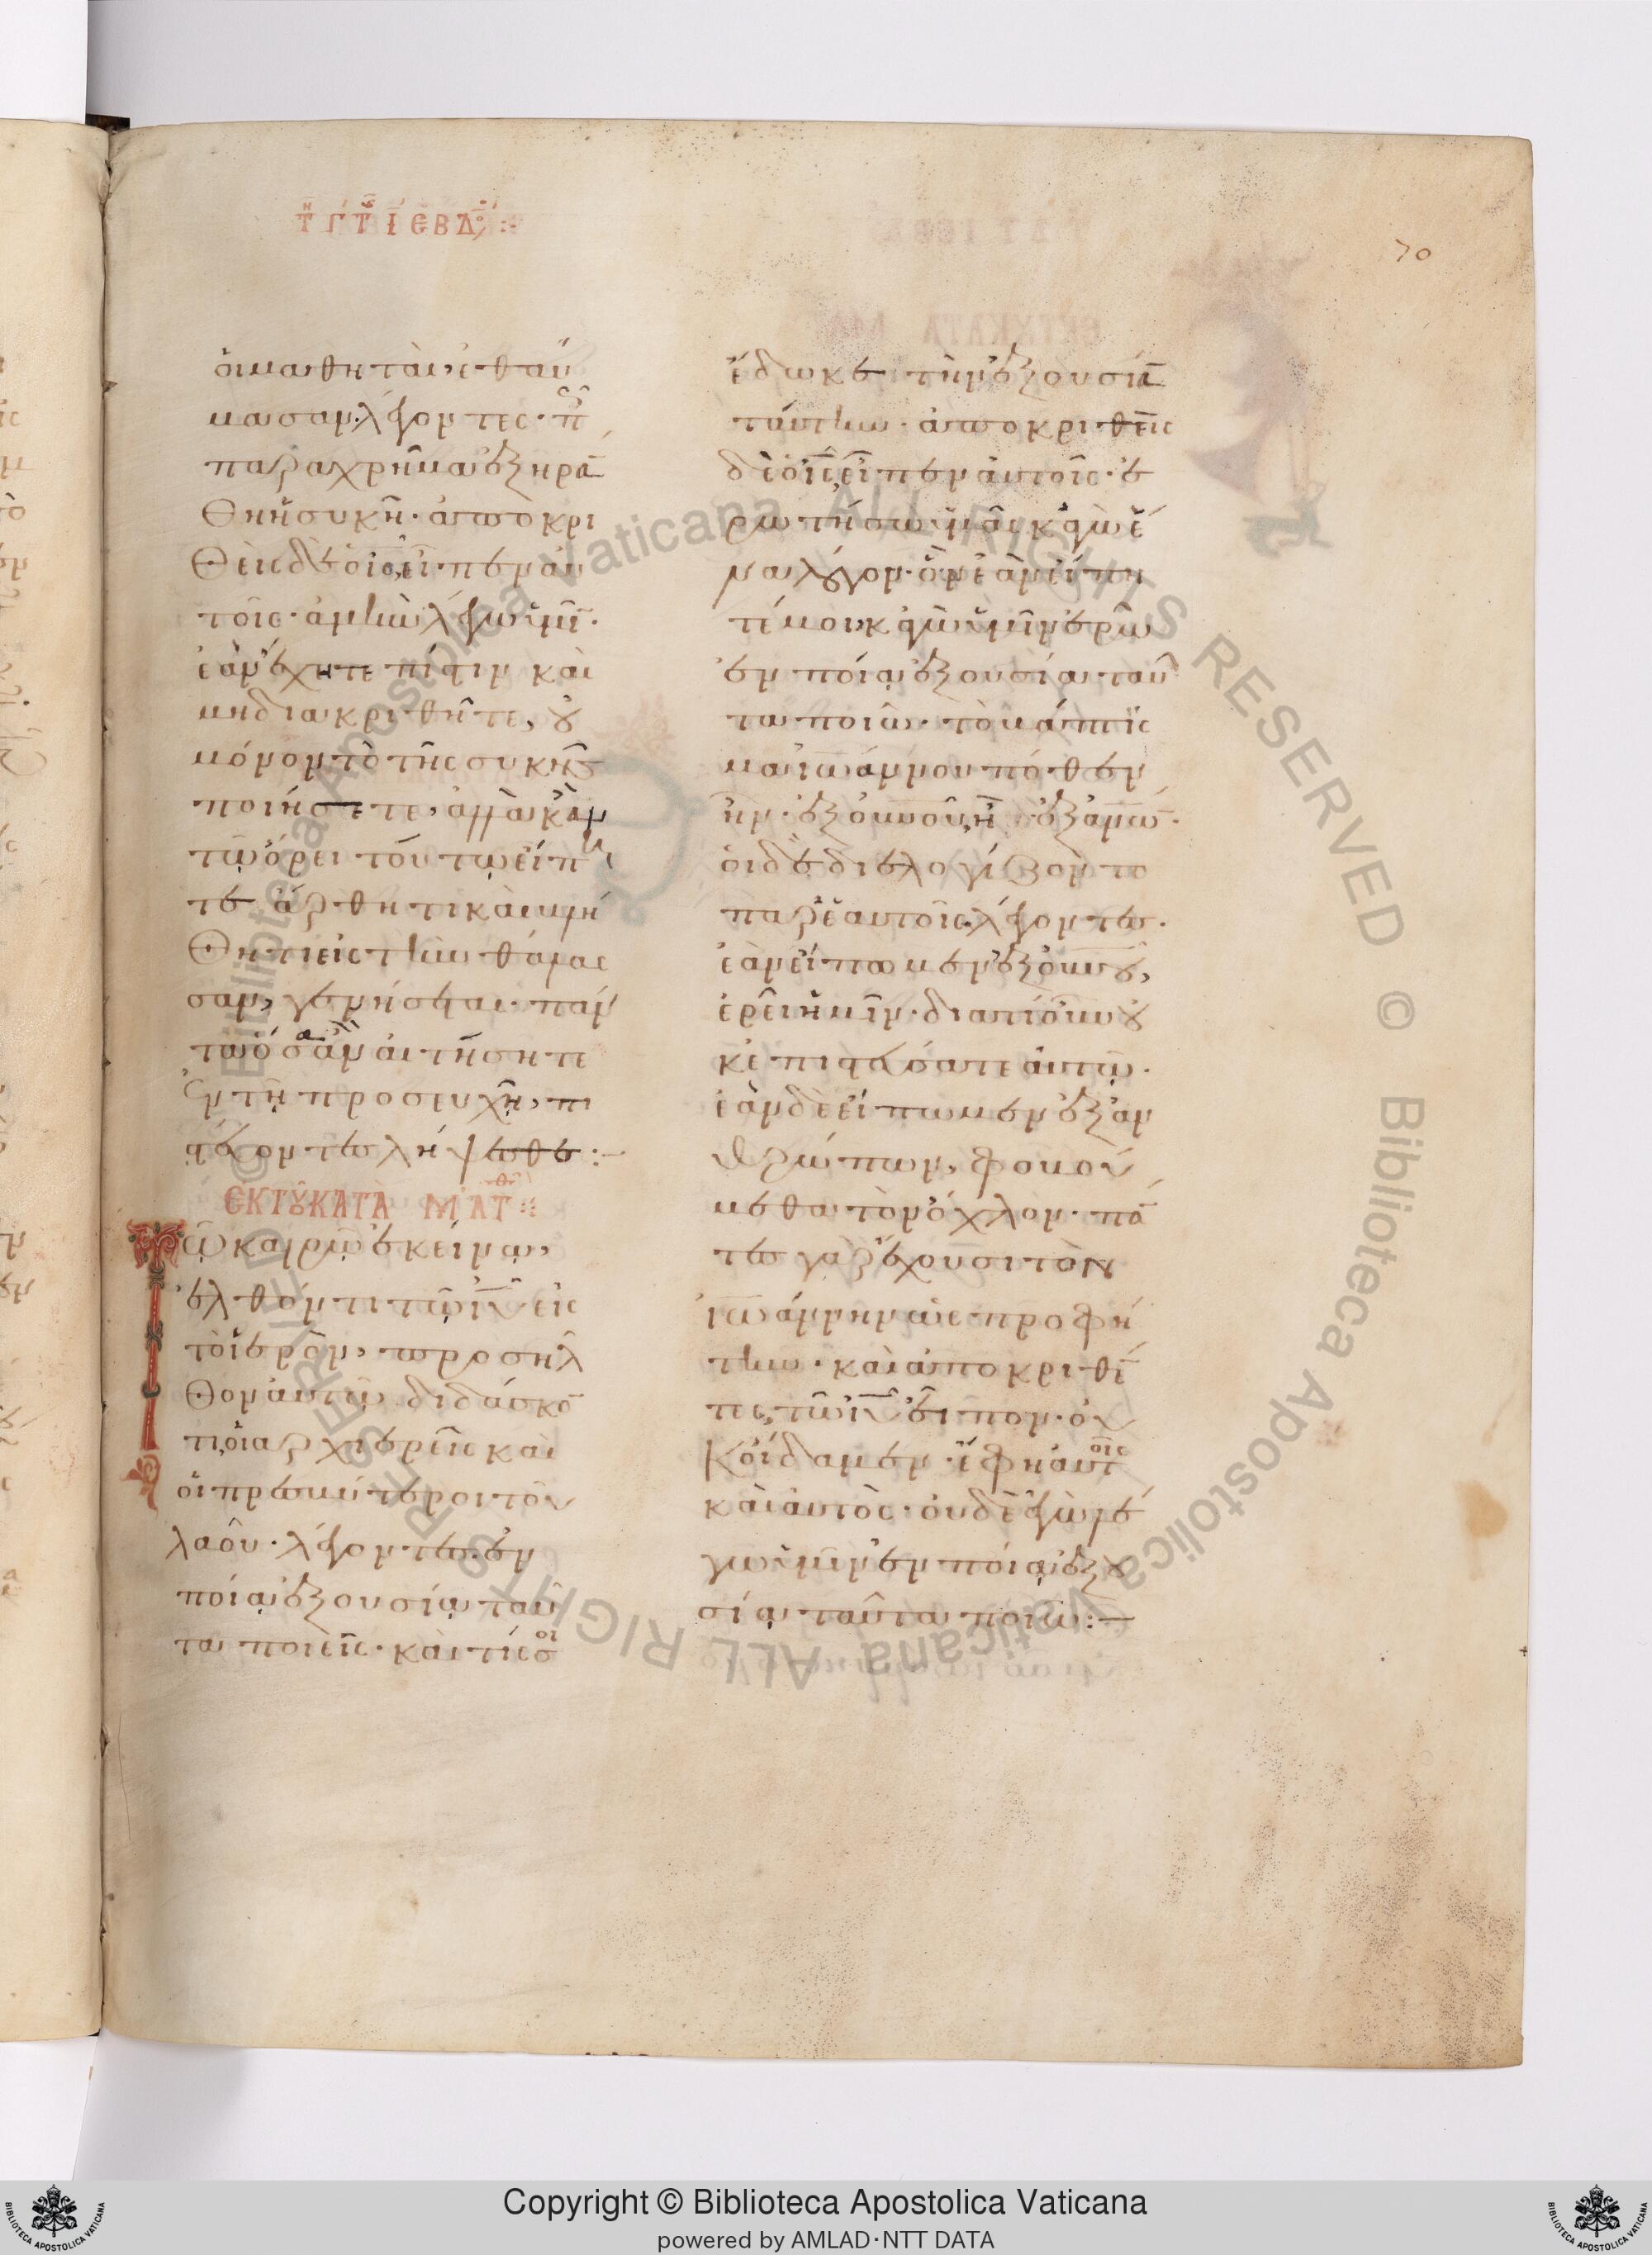 τῇ γ τῆς ι εβδ
70
ὁι μαθηταὶ ἐθαύ
μασαν λέγοντες· πῶς
παραχρῆμα ἐξηρά
θη ἡ συκῆ· ἀποκρι
θεὶς δὲ ὁ ις εἶπεν αὐ
τοῖς· ἀμὴν λέγω ὑμῖ·
ἐὰν ἔχητε πίστιν καὶ
μὴ διακριθῆτε, οὐ
μόνον τὸ τῆς συκῆς
ποιήσετε, ἀλλὰ κἂν
τῷ ὄρει τούτῳ εἴπη
τε ἄρθητι καὶ βλή
θητι εἰς τὴν θάλασ
σαν, γενήσεται· πάν
τα ὅσα ἂν αἰτήσητε
ἐν τῇ προσευχῇ, πι
στεύοντες λήψεσθε:-
ΕΚ ΤΟΥ ΚΑΤΑ ΜΑΤΘ
Τῷ καιρῷ ἐκείνῳ,
ἐλθόντι τῷ ιυ εἰς
τὸ ἱερὸν, προσῆλ
θον αὐτῷ διδάσκο
τι, οἱ ἀρχιερεῖς καὶ
οἱ πρεσβύτεροι τοῦ
λαοῦ· λέγοντες· ἐν
ποίᾳ ἐξουσίᾳ ταῦ
τα ποιεῖς· καὶ τίς σοι
ἔδωκε τὴν ἐξουσία
ταύτην· ἀποκριθεὶς
δὲ ὁ ις εἶπεν αὐτοῖς· ἐ
ρωτήσω ὑμᾶς κἀγὼ ἕ
να λόγον· ὃν ἐὰν εἴπη
τέ μοι, κἀγὼ ὑμῖν ἐρῶ
ἐν ποίᾳ ἐξουσίᾳ ταῦ
τα ποιῶ· τὸ βάπτισ
μα ἰωάννου πόθεν
ἦν· ἐξ οὐνοῦ, ἢ ἐξ ανων·
οἱ δὲ διελογίζοντο
παρ' ἑαυτοῖς λέγοντες·
ἐὰν εἴπωμεν ἐξ οὐνοῦ,
ἐρεῖ ἡμῖν· διατί οὖν οὐ
κ ἐπιστεύσατε αὐτῷ·
ἐὰν δὲ εἴπωμεν ἐξ ἀν
θρώπων, φοβού
μεθα τὸν ὄχλον· πά
τες γὰρ ἔχουσι τὸν
ἰωάννην ὡς προφή
την· καὶ ἀποκριθέ
τες τῷ ιυ εἶπον· οὐ
κ οἴδαμεν· ἔφη αὐτοῖς
καὶ αὐτὸς· οὐδὲ ἐγὼ λέ
γω ὑμῖν ἐν ποίᾳ ἐξου
σίᾳ ταῦτα ποιῶ:-
© Biblioteca Apostolica Vaticana ALL RIGHTS RESERVED © Biblioteca Apostolica Vaticana ALL RIGHTS RESERVED
BIBLIOTECA APOSTOLICA VATICANA
Copyright © Biblioteca Apostolica Vaticana
powered by AMLAD·NTT DATA
BIBLIOTECA APOSTOLICA VATICANA